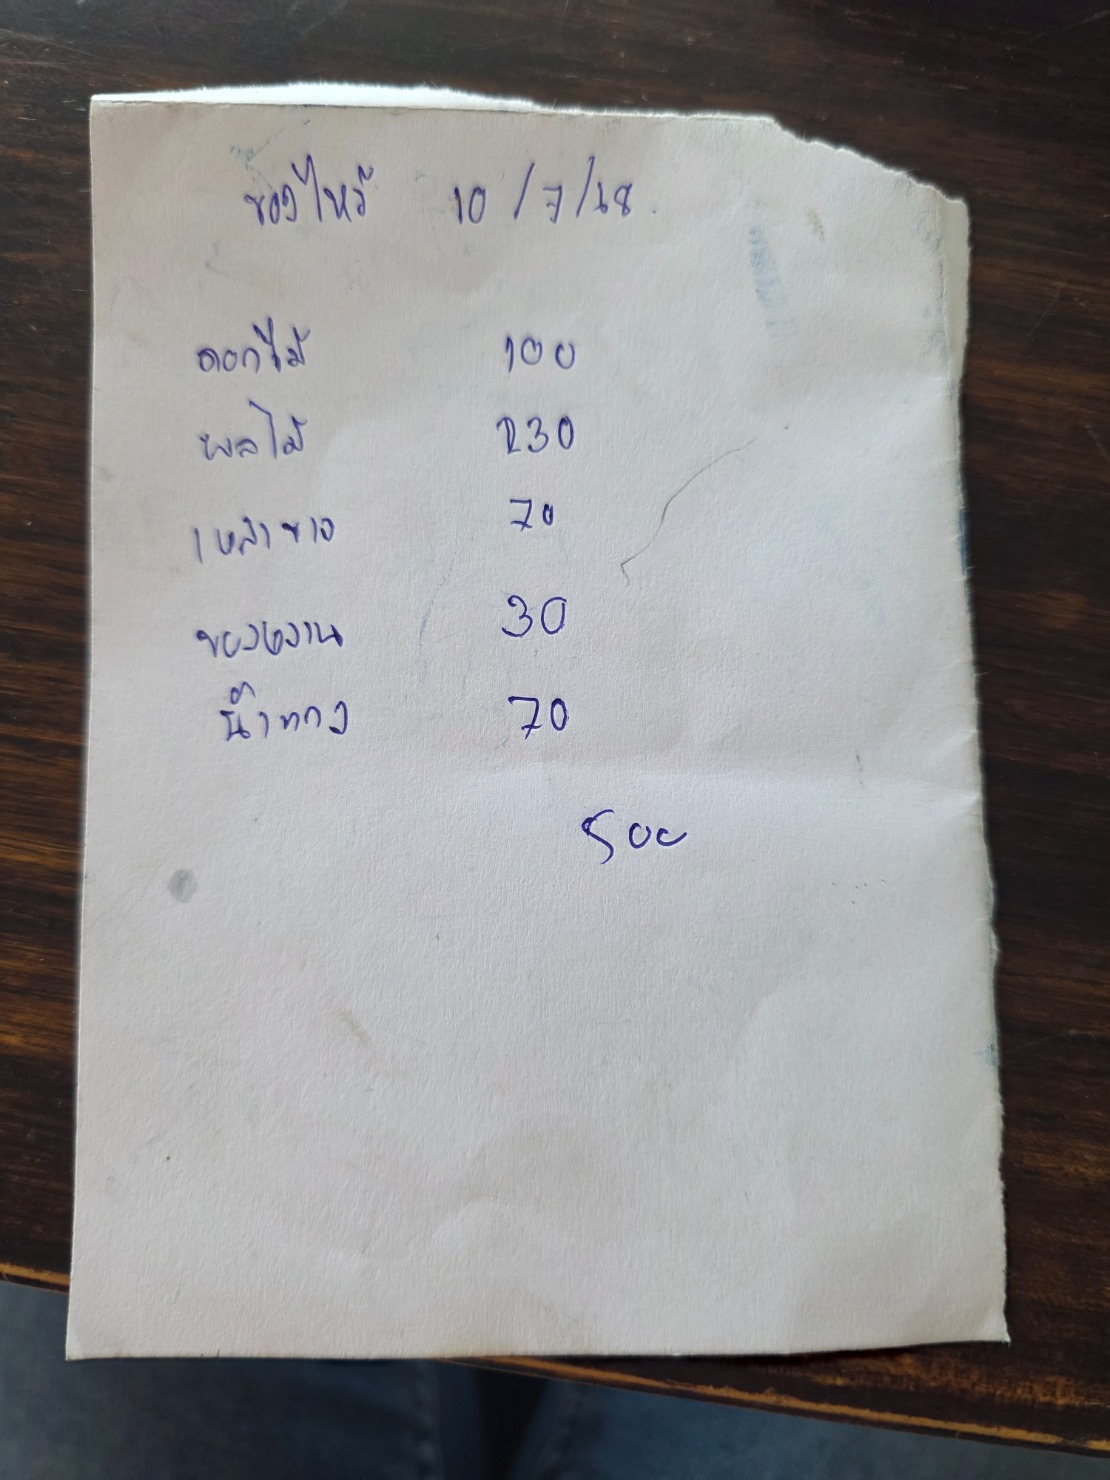 ของไหว้ 10/7/68.
ดอกไม้ 100
ผลไม้ 230
เหล้าขาว 70
ของหวาน 30
น้ำแดง 70
500